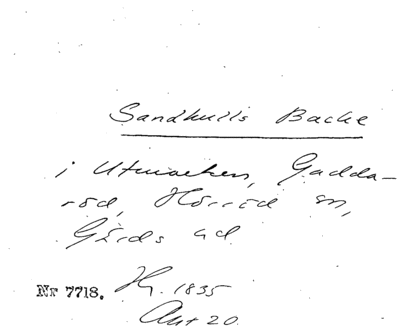 Sandkulls Backe
i Utmarken, Gadda-
röd, Hörröd sn,
Gärds hd
Nr 7718. Hy. 1835
Akt 20.